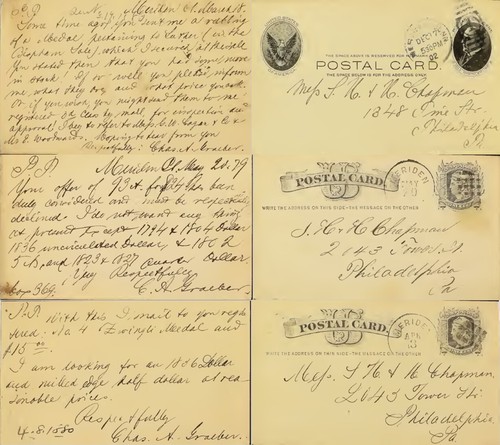 P.P. Meriden Ct. March 18.
Some time ago you sent me a rubbing
of a Medal pertaining to Luther (in the
Clapham Sale), which I secured, at the sale
you stated then that you had some more
in stock. If so will you please inform
me what they are and what price you ask
or if you wish you might send them to me
registered 10 Class by mail for inspection and
approval. I beg to refer to Messrs C. W.
Mr. E. Woodward. Hoping to hear from you
Respectfully: Chas. A. Graeber.
POSTAL CARD.
THE SPACE ABOVE IS RESERVED FOR POSTMARK
THE SPACE BELOW IS FOR THE ADDRESS ONLY
Mess S. H. & H. Chapman
1348 Pine Str.
Philadelphia
Pa
P.P. Meriden Ct. May 20. 79
Your offer of for has been
duly considered and must be respectfully
declined. I do not want any thing
at present except 1794 & 1804 Dollar
1836 uncirculated Dollar, & 1802
5 c., and 1823 & 1827 Quarter Dollar.
Very Respectfully
box 369. C. A. Graeber.
POSTAL CARD.
WRITE THE ADDRESS ON THIS SIDE - THE MESSAGE ON THE OTHER
MERIDEN
MAY
20
S. H. & H. Chapman
2043 Tower St.
Philadelphia
Pa
P.P. With this I mail to you regis
tered. No. 4 Zwingli Medal and
$15 00.
I am looking for an 1836 Dollar
and milled edge half dollar at rea
sonable prices.
Respectfully
4. 8. 1880 Chas. A. Graeber.
POSTAL CARD.
WRITE THE ADDRESS ON THIS SIDE - THE MESSAGE ON THE OTHER
MERIDEN
APR
Mess. S H & H Chapman,
2043 Tower Str.
Philadelphia
Pa.